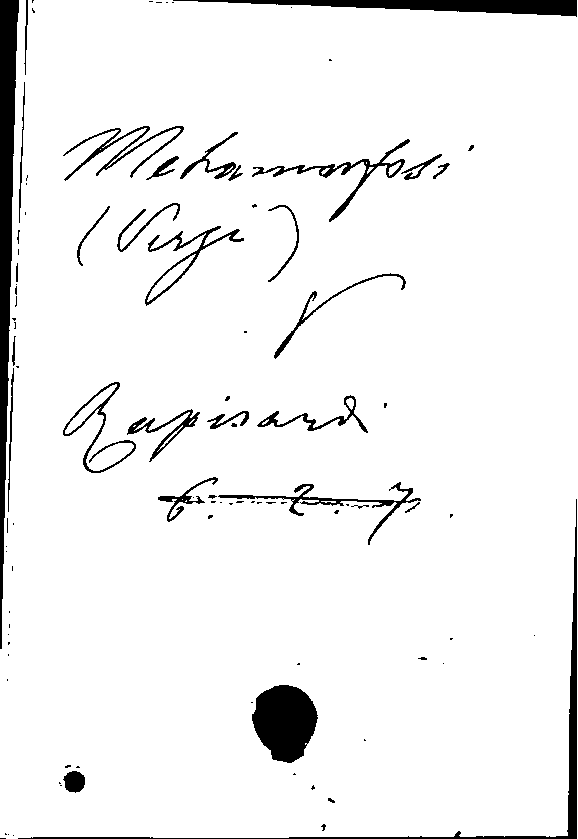 Metamorfosi
(Versi)
V
Rapisardi
6. 2. 7.